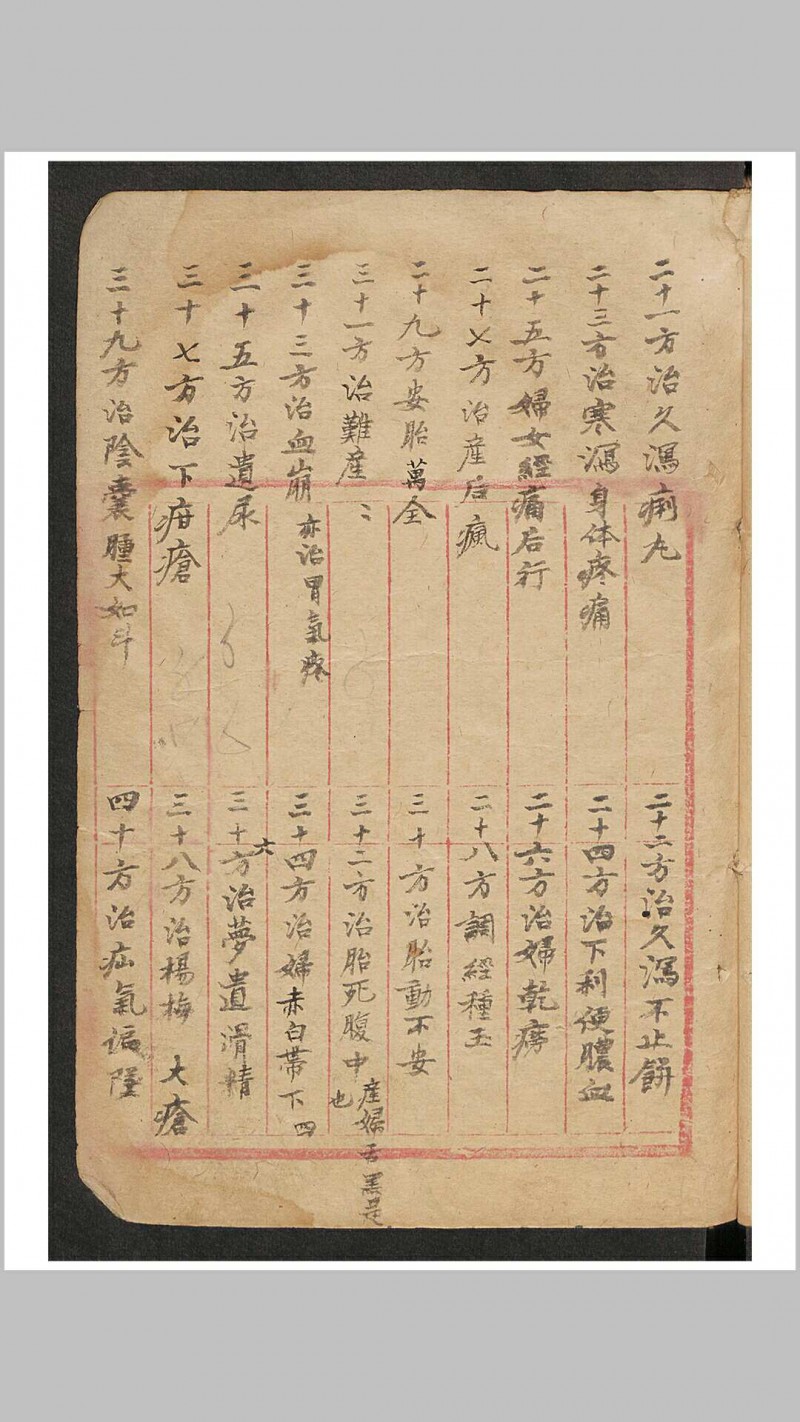 二十一方治久瀉痢丸
二十二方治久瀉不止餅
二十三方治寒瀉身体疼痛
二十四方治下利便膿血
二十五方婦女經痛后行
二十六方治婦乾癆
二十七方治産后瘋
二十八方調經種玉
二十九方安胎萬全
三十方治胎動不安
三十一方治難産〻
三十二方治胎死腹中 産婦舌黑是也
三十三方治血崩 亦治胃氣疼
三十四方治婦赤白帶下 四
三十五方治遺尿
三十六方治夢遺滑精
三十七方治下疳瘡
三十八方治楊梅 大瘡
三十九方治陰囊腫大如斗
四十方治疝氣偏墜